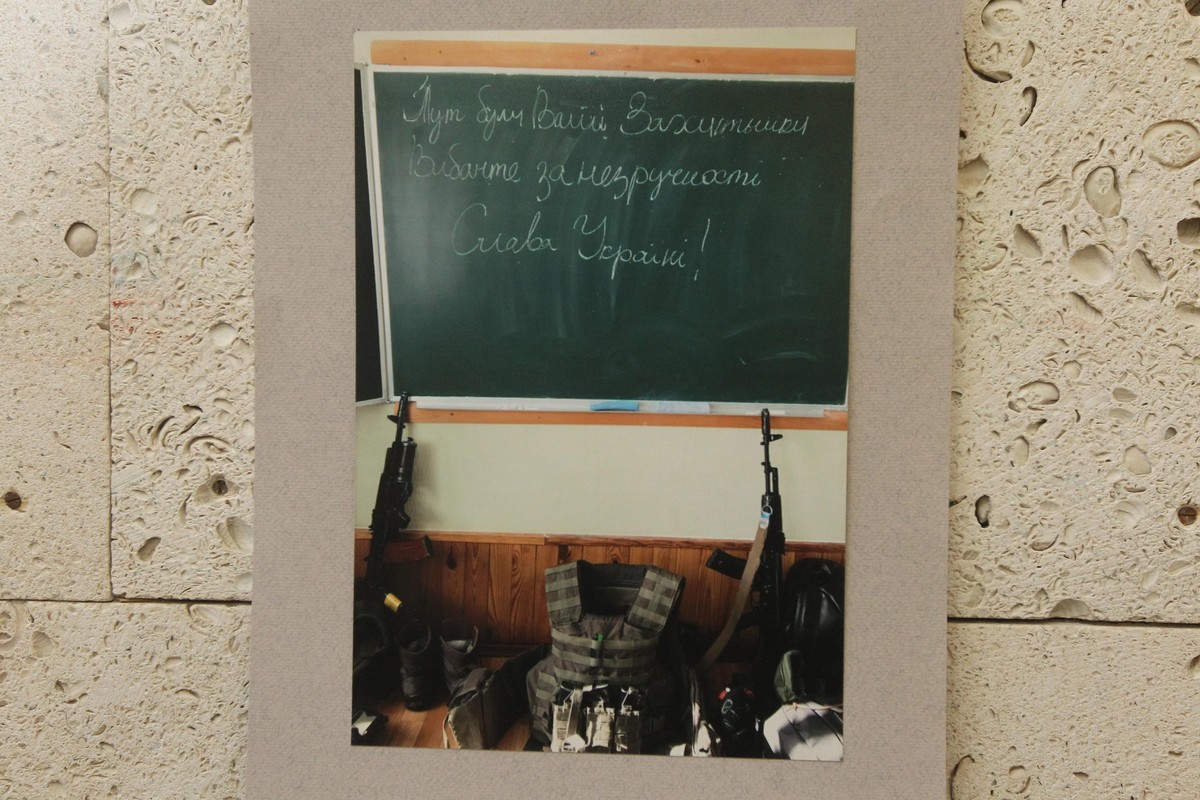 Тут були Ваші Захистники
Вибачте за незручності
Слава Україні!